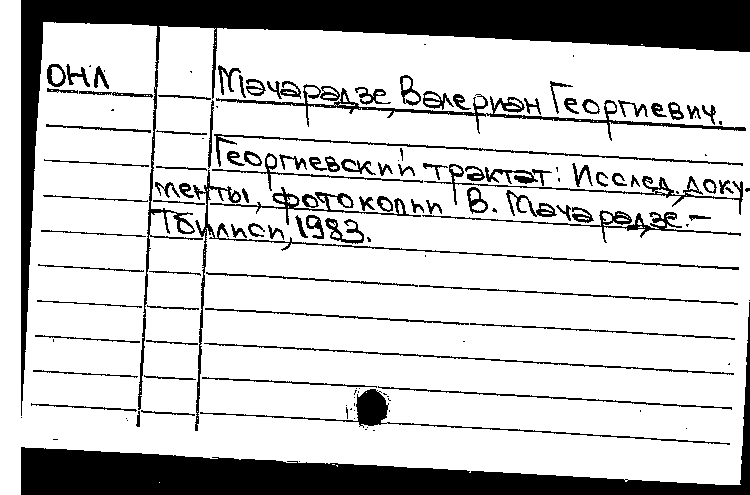 ОНЛ
Мачарадзе, Валериан Георгиевич.
Георгиевский трактат: Исслед., доку-
менты, фотокопии В. Мачарадзе.-
Тбилиси, 1983.